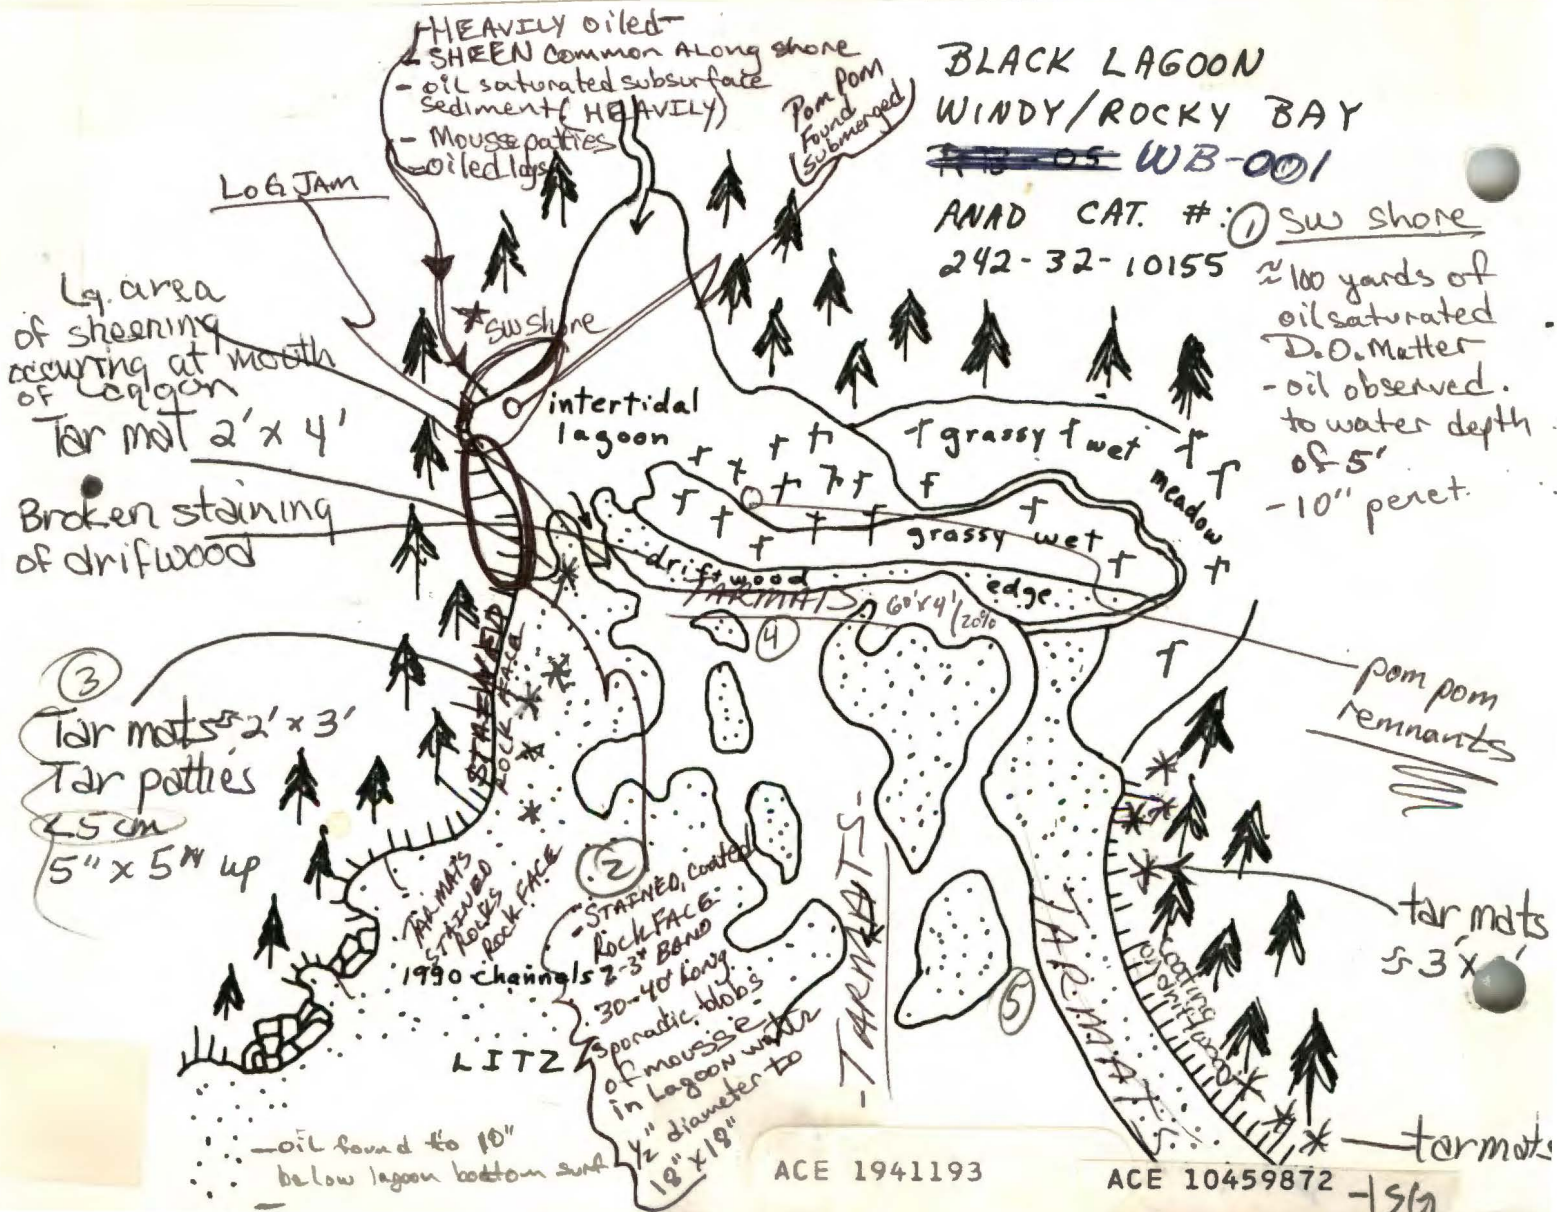 - HEAVILY oiled -
- SHEEN Common ALong shore
- oil saturated subsurface
sediment (HEAVILY)
- Mousse patties
- oiled logs
Pom Pom
Found
submerged
BLACK LAGOON
WINDY/ROCKY BAY
WB-001
ANAD CAT. #:
242-32-10155
① SW shore
≈ 100 yards of
oil saturated
D.O. Matter
- oil observed.
to water depth
of 5'
- 10" penet.
LOG JAM
Lg. area
of sheening
occuring at mouth
of Lagoon
Tar mat 2' x 4'
Broken staining
of drifwood
* SW Shore
intertidal
lagoon
grassy wet
meadow
grassy wet
driftwood edge
TARMATS 60'x4'/20%
④
pom pom
remnants
③
Tar mats 2' x 3'
Tar patties
<5 cm
5" x 5" up
STAINED
ROCK FACE
TAR MATS
STAINED
ROCKS
ROCK FACE
1990 channels
LITZ
②
- STAINED, coated
Rock FACE
2-3" BAND
30-40' Long
sporadic blobs
of mousse
in Lagoon water
½" diameter to
18" x 18"
- TARMATS -
⑤
TARMATS
coating
on driftwood
tar mats
tar mats
- oil found to 10"
below lagoon bottom surf
ACE 1941193
ACE 10459872